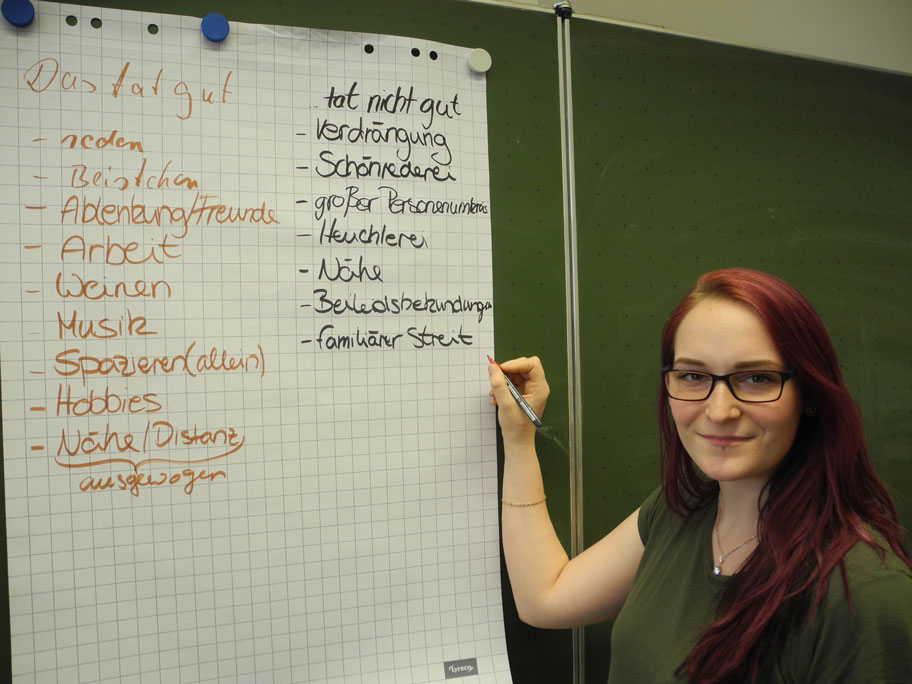 Das tat gut
- reden
- Beistehen
- Ablenkung/Freunde
- Arbeit
- Weinen
- Musik
- Spazieren (allein)
- Hobbies
- Nähe/Distanz
ausgewogen
... tat nicht gut
- Verdrängung
- Schönrederei
- großer Personenumkreis
- Heuchlerei
- Nähe
- Beileidsbekundungen
- familiärer Streit